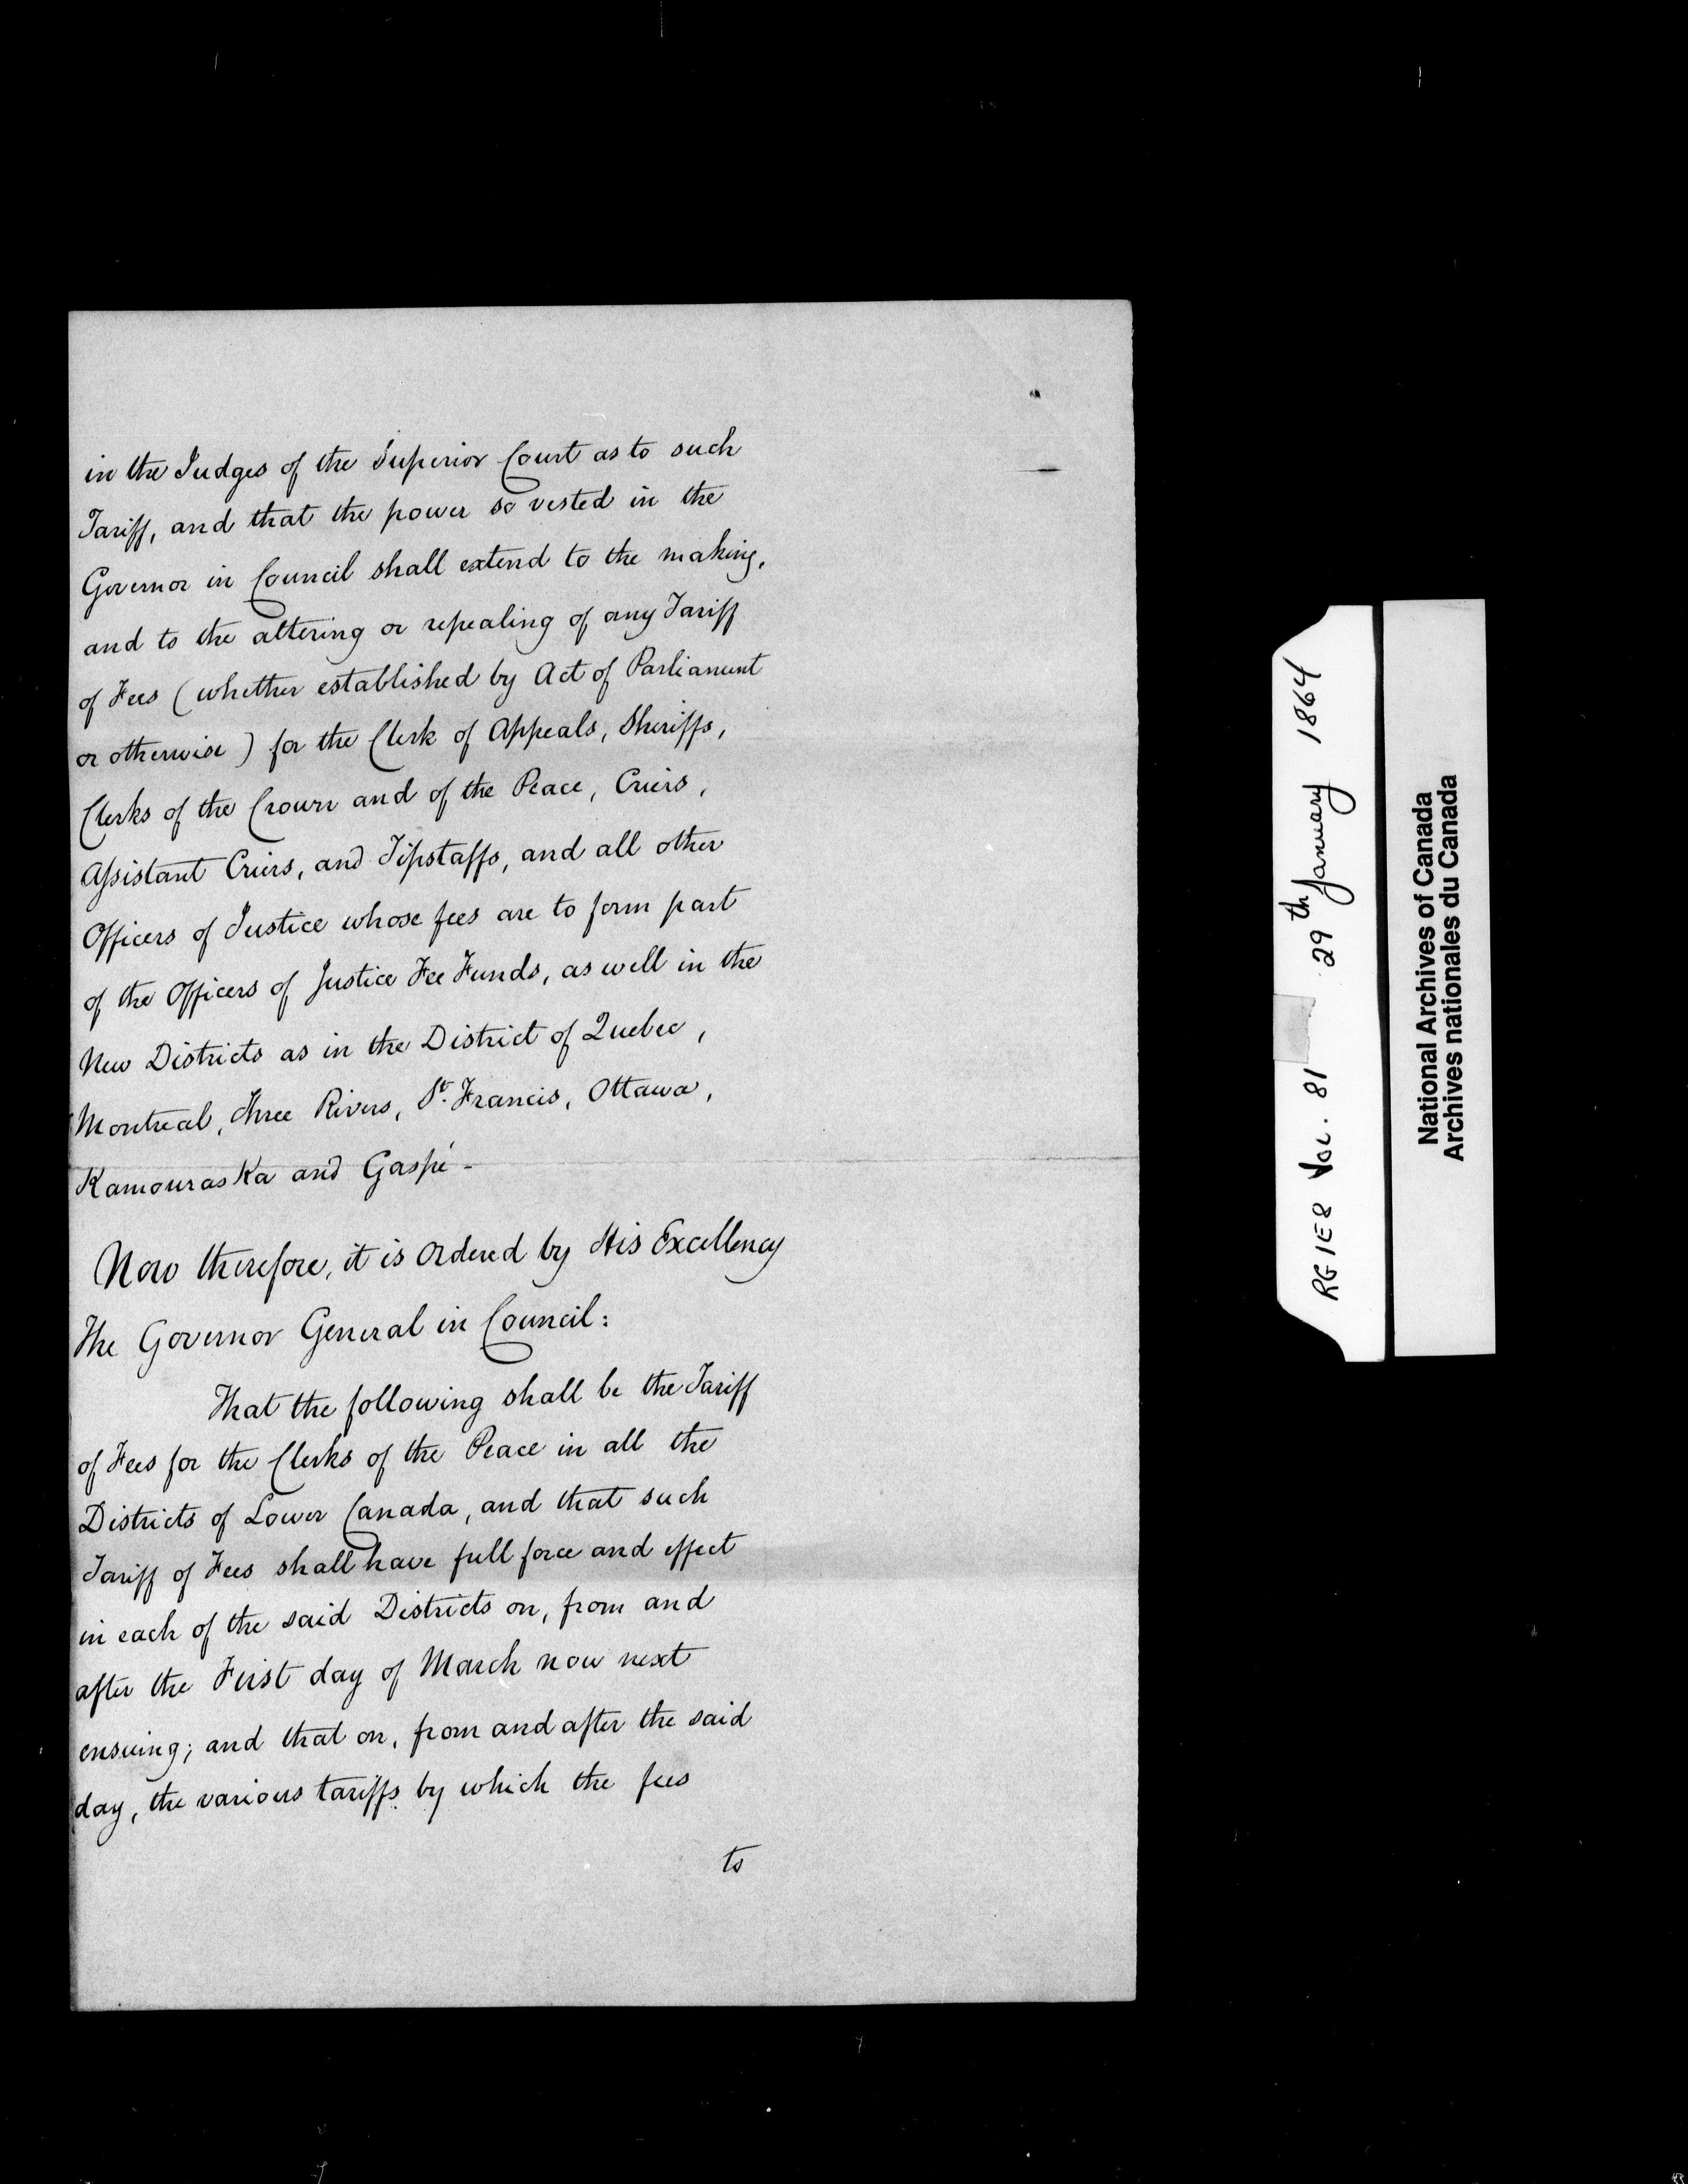 in the Judges of the Superior Court as to such
Tariff, and that the power so vested in the
Governor in Council shall extend to the making,
and to the altering or repealing of any Tariff
of Fees (whether established by Act of Parliament
or otherwise) for the Clerk of Appeals, Sheriffs,
Clerks of the Crown and of the Peace, Criers,
Assistant Criers, and Tipstaffs, and all other
Officers of Justice whose fees are to form part
of the Officers of Justice Fee Funds, as well in the
New Districts as in the District of Quebec,
Montreal, Three Rivers, St. Francis, Ottawa,
Kamouraska and Gaspé -
Now therefore, it is Ordered by His Excellency
The Governor General in Council:
That the following shall be the Tariff
of Fees for the Clerks of the Peace in all the
Districts of Lower Canada, and that such
Tariff of Fees shall have full force and effect
in each of the said Districts on, from and
after the First day of March now next
ensuing; and that on, from and after the said
day, the various tariffs by which the fees
to
RG1E8 Vol. 81 29th January 1864
National Archives of Canada
Archives nationales du Canada